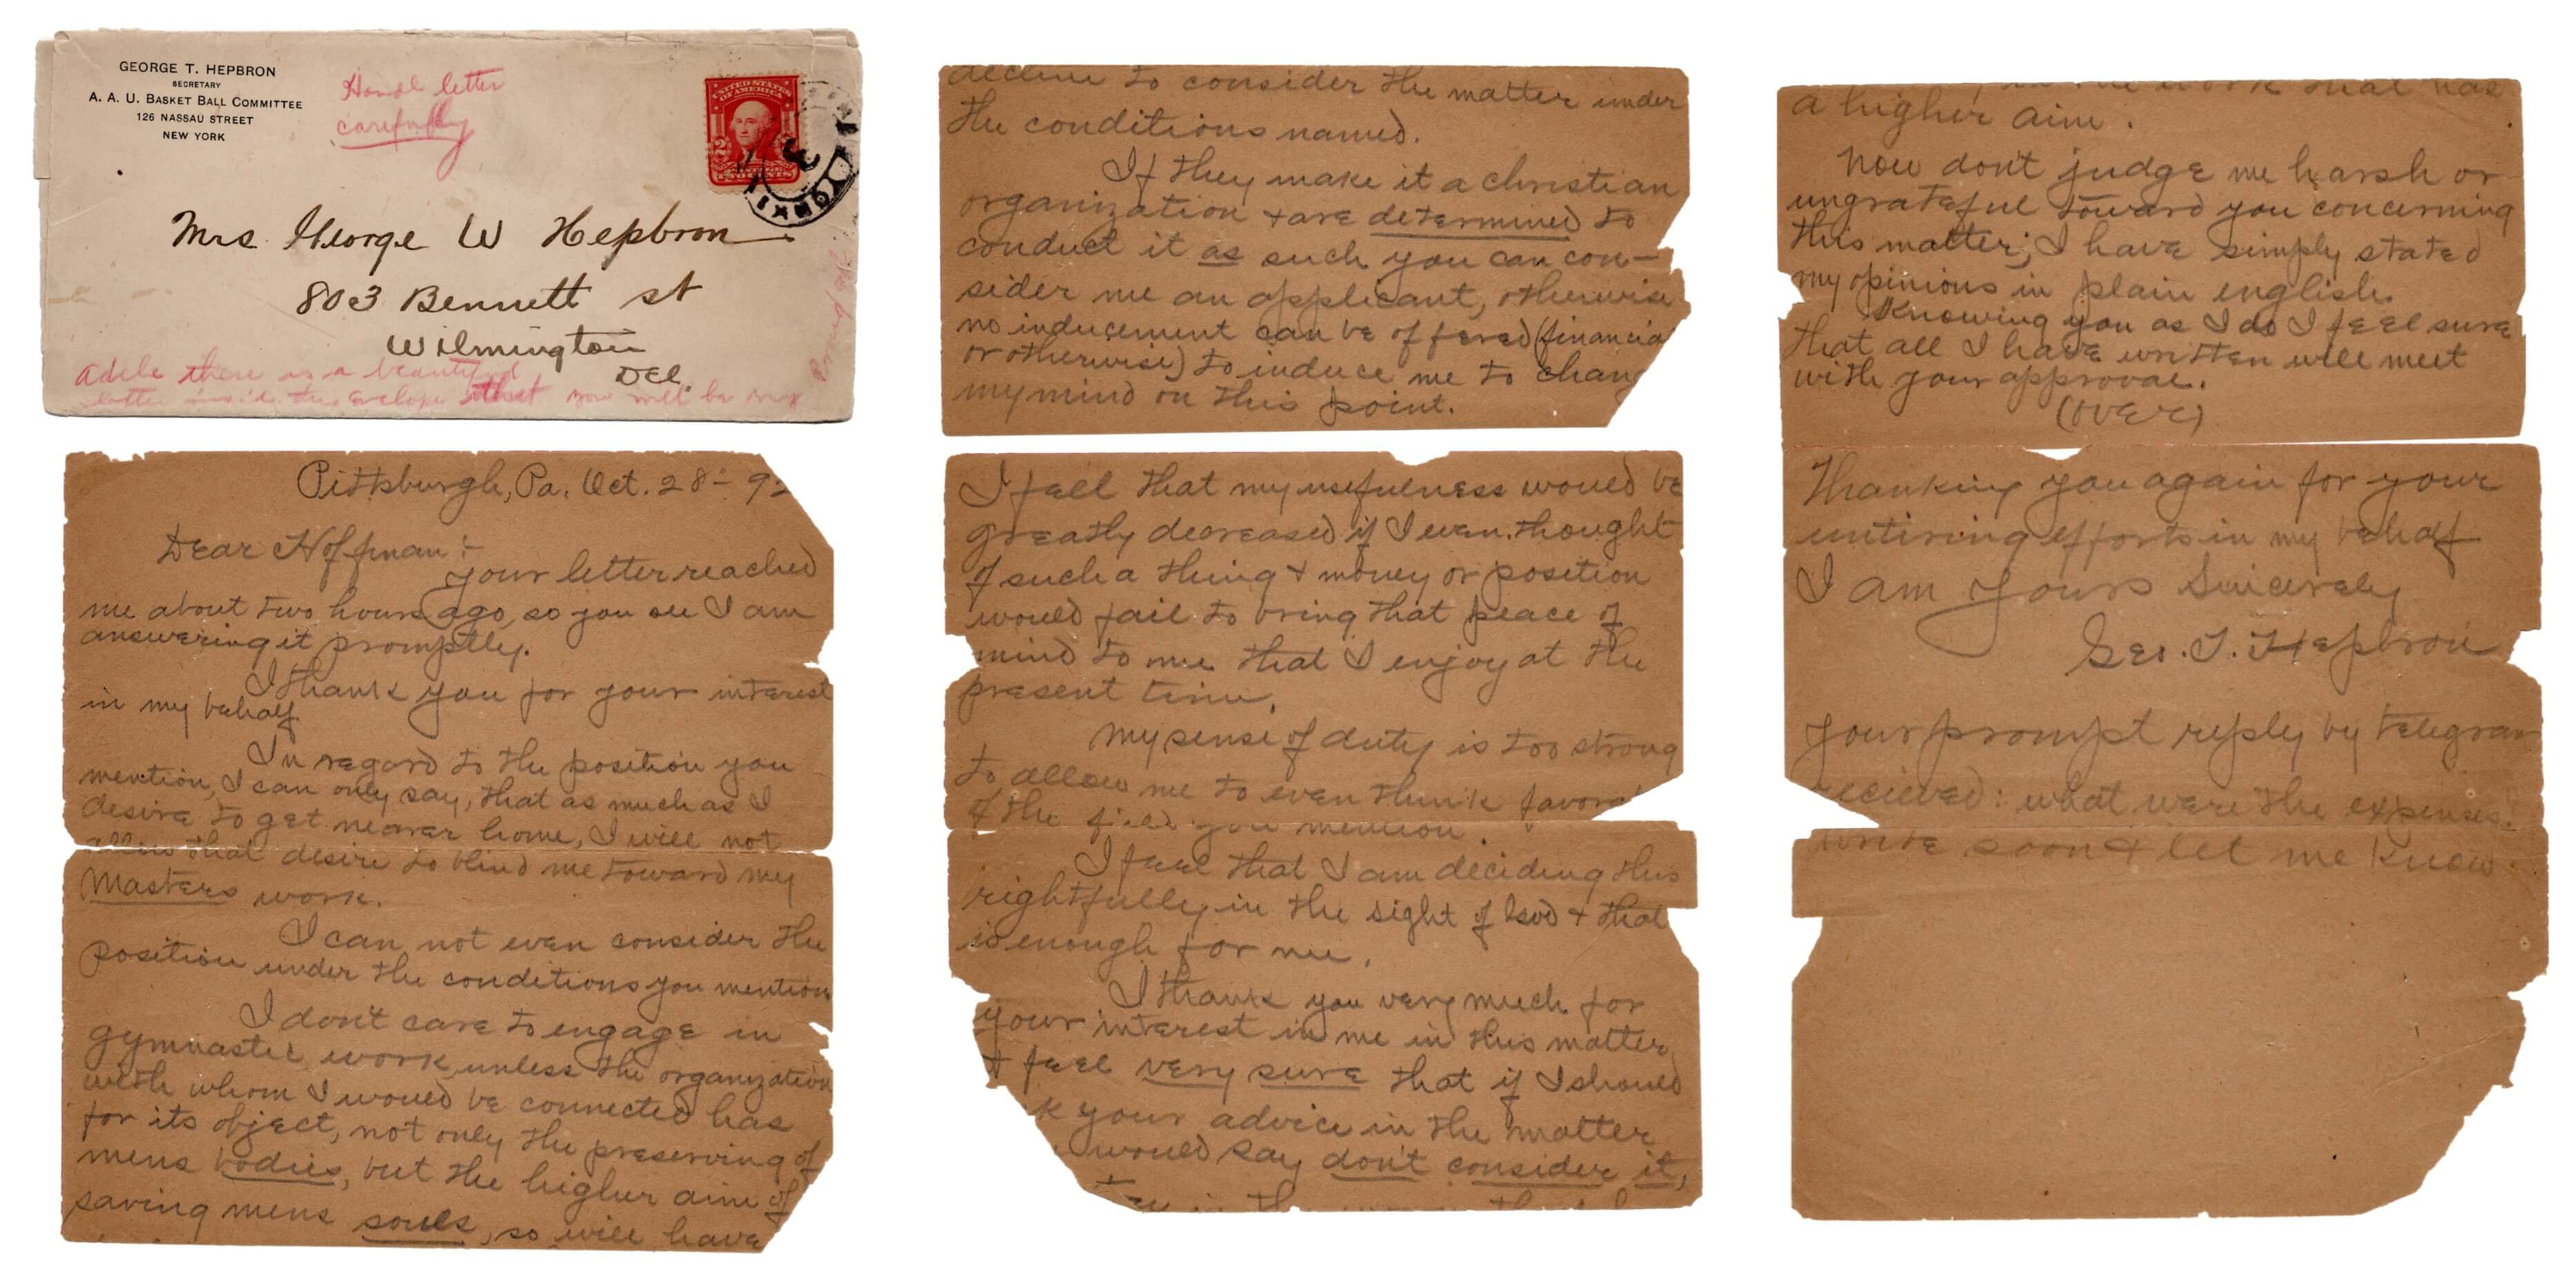 GEORGE T. HEPBRON
SECRETARY
A. A. U. BASKET BALL COMMITTEE
126 NASSAU STREET
NEW YORK
Handl letter
carefully
UNITED STATES
OF AMERICA
2 2
TWO CENTS
Mrs George W Hepbron
803 Bennett st
Wilmington
Del.
Adele there is a beautiful
letter inside this envelope that you will be very
Pittsburgh, Pa. Oct. 28 - 92
Dear Hoffman :-
your letter reached
me about two hours ago, so you see I am
answering it promptly.
I thank you for your interest
in my behalf.
In regard to the position you
mention, I can only say, that as much as I
desire to get nearer home, I will not
allow that desire to blind me toward my
Masters work.
I can not even consider the
position under the conditions you mention
I don't care to engage in
gymnastic work unless the organization
with whom I would be connected has
for its object, not only the preserving of
mens bodies, but the higher aim of
saving mens souls, so will have
decline to consider the matter under
the conditions named.
If they make it a christian
organization + are determined to
conduct it as such you can con-
sider me an applicant, otherwise
no inducement can be offered (financial
or otherwise) to induce me to chang
my mind on this point.
I feel that my usefulness would be
greatly decreased if I even thought
of such a thing + money or position
would fail to bring that peace of
mind to me that I enjoy at the
present time.
My sense of duty is too strong
to allow me to even think favora
of the field you mention.
I feel that I am deciding this
rightfully in the sight of God + that
is enough for me.
I thank you very much for
your interest in me in this matter
+ feel very sure that if I should
k your advice in the matter
would say don't consider it,
the work that has
a higher aim.
Now don't judge me harsh or
ungrateful toward you concerning
this matter; I have simply stated
my opinions in plain english.
Knowing you as I do I feel sure
that all I have written will meet
with your approval.
(OVER)
Thanking you again for your
untiring efforts in my behalf
I am Yours Sincerely
Geo. T. Hepbron
Your prompt reply by telegram
recieved: what were the expenses?
write soon + let me know.